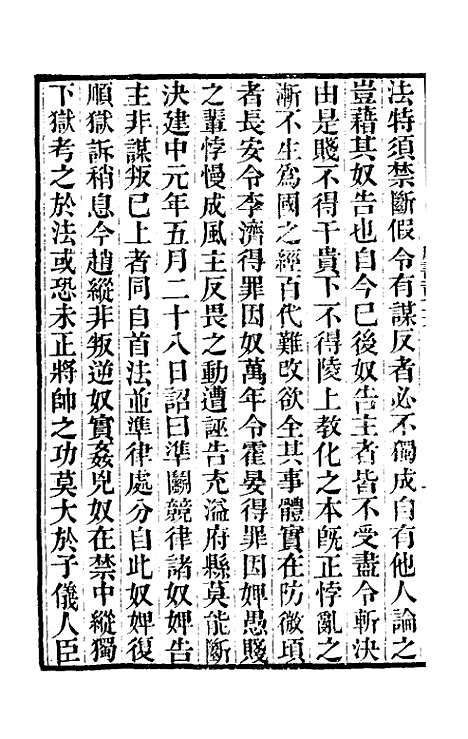 法特須禁斷假令有謀反者必不獨成自有他人論之
豈藉其奴告也自今已後奴告主者皆不受盡令斬決
由是賤不得干貴下不得陵上教化之本旣正悖亂之
漸不生爲國之經百代難改欲全其事體實在防微項
者長安令李濟得罪因奴萬年令霍晏得罪因婢愚賤
之輩悖慢成風主反畏之動遭誣告充溢府縣莫能斷
決建中元年五月二十八日詔曰準鬭競律諸奴婢告
主非謀叛已上者同自首法並準律處分自此奴婢復
順獄訴稍息今趙縱非叛逆奴實姦兇奴在禁中縱獨
下獄考之於法或恐未正將帥之功莫大於子儀人臣